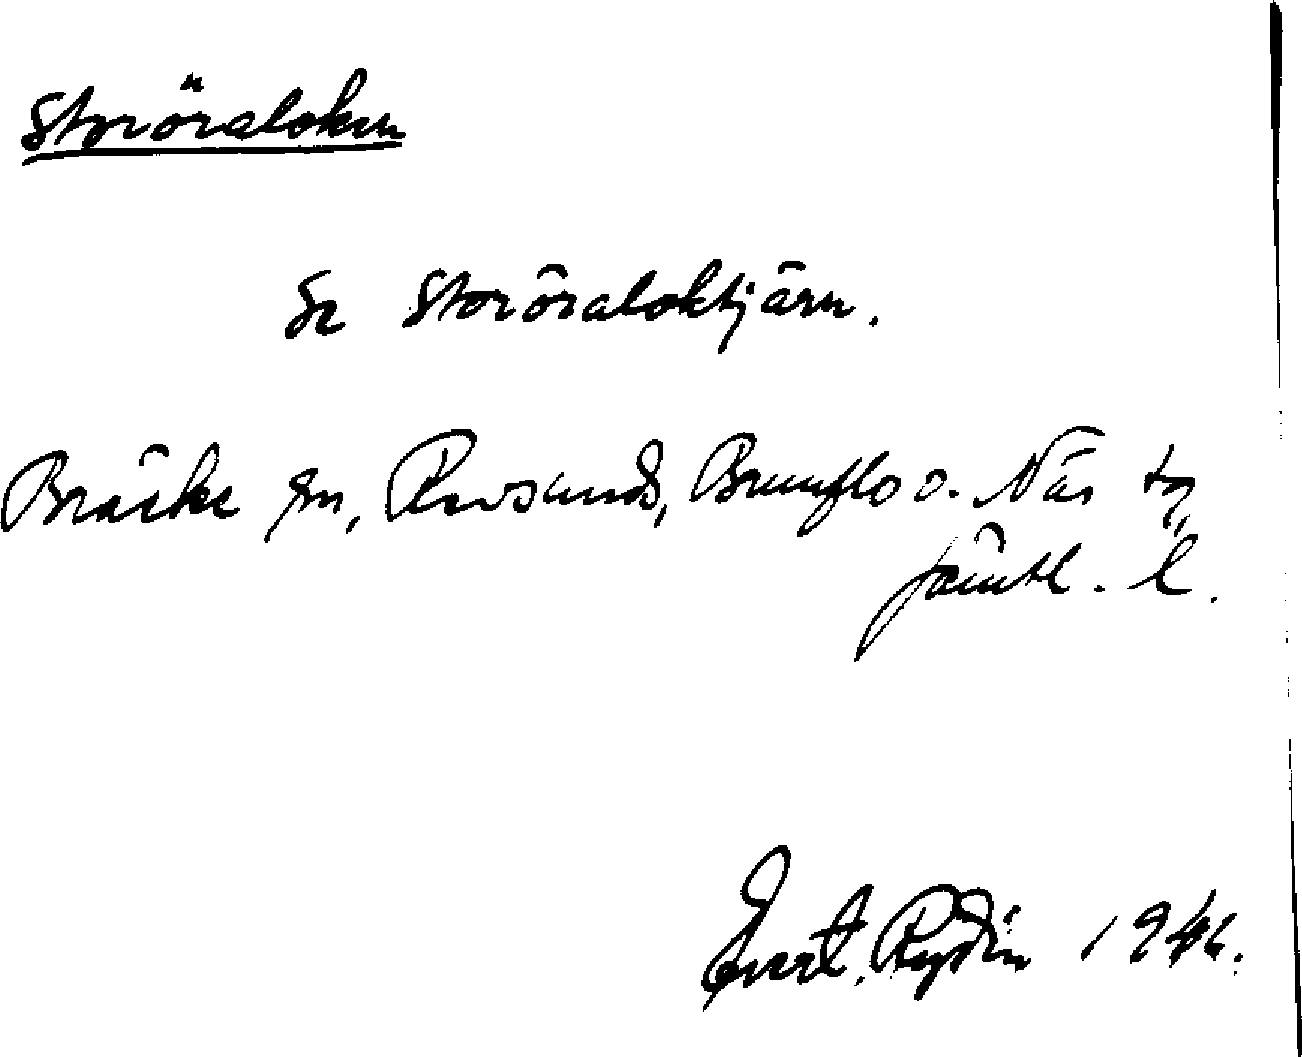 Storöraloken
Se Storöraloktjärn.
Bräcke sn, Revsunds, Brunflo o. Näs tg,
Jämtl. l.
Evert Rydin 1946.